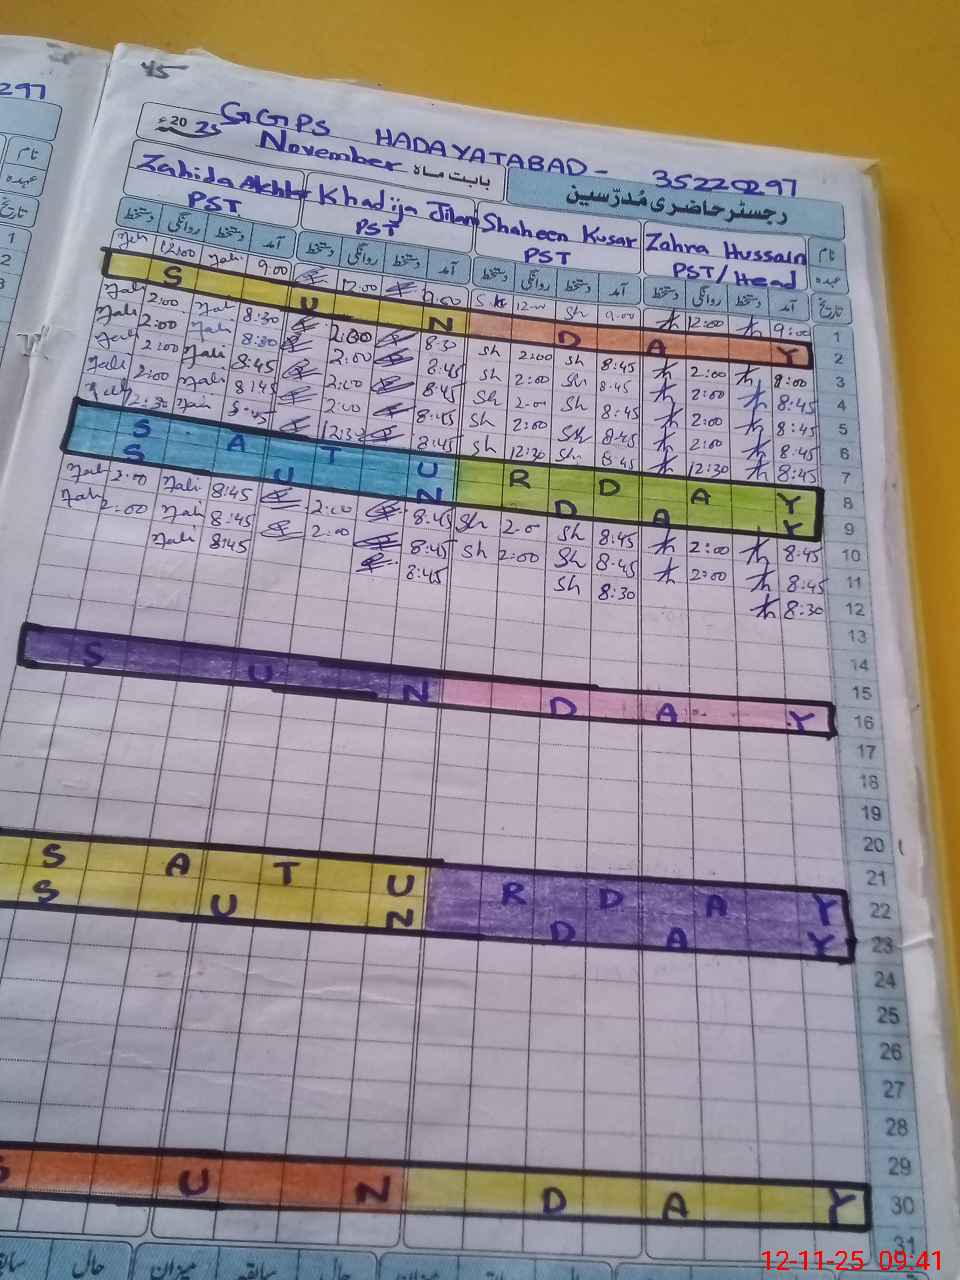 45
297
GGPS HADAYATABAD - 35220297
2025ء November بابت ماہ رجسٹر حاضری مُدرّسین
نام Zahra Hussain Shaheen Kusar Khadija Jilani Zahida Akhtar
عہدہ PST/Head PST PST PST
تاریخ آمد دستخط روانگی دستخط آمد دستخط روانگی دستخط آمد دستخط روانگی دستخط آمد دستخط روانگی دستخط
1 9:00 12:00 9:00 Sh 9:00 12:00 9:00 12:00
2 SUNDAY
3 8:00 2:00 8:45 Sh 2:00 Sh 8:30 2:00 8:30 2:00
4 8:45 2:00 8:45 Sh 2:00 Sh 8:45 2:00 8:30 2:00
5 8:45 2:00 8:45 Sh 2:00 Sh 8:45 2:00 8:45 2:00
6 8:45 2:00 8:45 Sh 2:00 Sh 8:45 2:00 8:45 2:00
7 8:45 12:30 8:45 Sh 12:30 Sh 8:45 12:30 8:45 12:30
8 SATURDAY
9 SUNDAY
10 8:45 2:00 8:45 Sh 2:0 Sh 8:45 2:00 8:45 2:00
11 8:45 2:00 8:45 Sh 2:00 Sh 8:45 2:00 8:45 2:00
12 8:30 8:30 Sh 8:45 8:45
13
14
15
16 SUNDAY
17
18
19
20
21
22 SATURDAY
23 SUNDAY
24
25
26
27
28
29
30 SUNDAY
31
میزان حال سابقہ
12-11-25 09:41